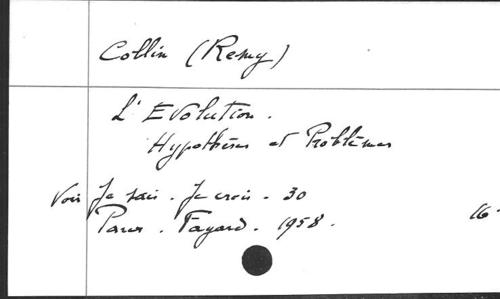 Collin (Remy)
L'Evolution.
Hypothèses et Problèmes
Voir Je sais. Je crois. 30
Paris. Fayard. 1958.
16-